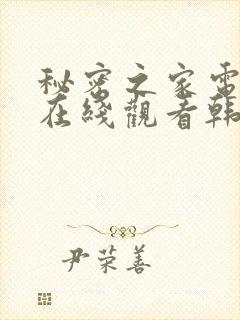 秘密之家電
在綫觀看韓
尹荣善